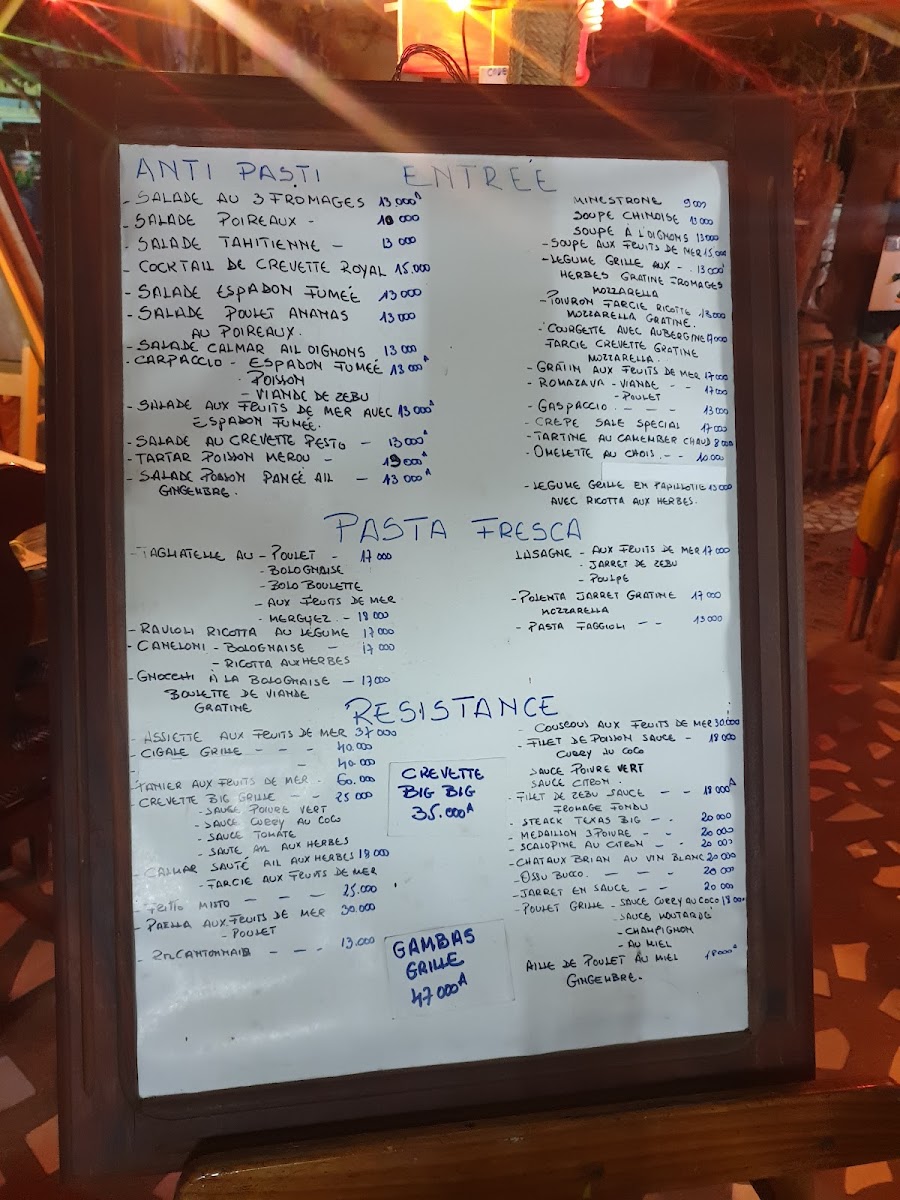 ANTI PASTI
- SALADE AU 3 FROMAGES 13 000 A
- SALADE POIREAUX - 10 000
- SALADE TAHITIENNE - 13 000
- COCKTAIL DE CREVETTE ROYAL 15.000
- SALADE ESPADON FUMEÉ 13 000
- SALADE POULET ANANAS 13 000
AU POIREAUX.
- SALADE CALMAR AIL OIGNONS 13 000
- CARPACCIO - ESPADON FUMEÉ 13 000 A
- POISSON
- VIANDE DE ZEBU
- SALADE AUX FRUITS DE MER AVEC 13 000 A
ESPADON FUMEÉ.
- SALADE AU CREVETTE PESTO - 13 000 A
- TARTAR POISSON MEROU - 19 000 A
- SALADE POISSON PANEÉ AIL - 13 000 A
GINGEMBRE.
ENTREÉ
MINESTRONE 9 000
SOUPE CHINOISE 13 000
SOUPE A L'OIGNONS 13 000
- SOUPE AUX FRUITS DE MER 15 000
- LEGUME GRILLE AUX - 13 000 A
HERBES GRATINE FROMAGES
MOZZARELLA
- POIVRON FARCIE RICOTTE 13 000
MOZZARELLA GRATINE.
- COURGETTE AVEC AUBERGINE 17 000
FARCIE CREVETTE GRATINE
MOZZARELLA.
- GRATIN AUX FRUITS DE MER 17 000
- ROMAZAVA - VIANDE - - 17 000
- POULET
- GASPACCIO - - - 13 000
- CREPE SALE SPECIAL 17 000
- TARTINE AU CAMEMBER CHAUD 8 000
- OMELETTE AU CHOIS - - 10.000
- LEGUME GRILLE EM PAPILLOTTE 13 000
AVEC RICOTTA AUX HERBES.
PASTA FRESCA
- TAGLIATELLE AU - POULET - 17 000
- BOLOGNAISE
- BOLO BOULETTE
- AUX FRUITS DE MER
- MERGUEZ - 18 000
- RAVIOLI RICOTTA AU LEGUME 17 000
- CANELONI - BOLOGNAISE - 17 000
- RICOTTA AUX HERBES
- GNOCCHI À LA BOLOGNAISE - 17 000
BOULETTE DE VIANDE
GRATINE
LASAGNE - AUX FRUITS DE MER 17 000
- JARRET DE ZEBU
- POULPE
- POLENTA JARRET GRATINE 17 000
MOZZARELLA
- PASTA FAGGIOLI - - 13 000
RESISTANCE
- ASSIETTE AUX FRUITS DE MER 37 000
- CIGALE GRILLE - - - 40.000
- 40.000
- PANIER AUX FRUITS DE MER - 60.000
- CREVETTE BIG GRILLE - - 25 000
- SAUCE POIVRE VERT
- SAUCE CURRY AU COCO
- SAUCE TOMATE
- SAUTE AIL AUX HERBES
- CALMAR SAUTÉ AIL AUX HERBES 18 000
- FARCIE AUX FRUITS DE MER
- FRITTO MISTO - - - 25.000
- PAELLA AUX FRUITS DE MER 30.000
- POULET
- CANTONNAIS - - - 13.000
CREVETTE
BIG BIG
35.000 A
GAMBAS
GRILLE
47 000 A
- COUSCOUS AUX FRUITS DE MER 30.000
- FILET DE POISSON SAUCE - 18 000
CURRY AU COCO
SAUCE POIVRE VERT
SAUCE CITRON.
- FILET DE ZEBU SAUCE - - 18 000 A
FROMAGE FONDU
- STEACK TEXAS BIG - - 20 000
- MEDAILLON 3 POIVRE - - 20 000
- SCALOPINE AU CITRON - - 20 000
- CHATAUX BRIAN AU VIN BLANC 20 000
- OSSU BUCCO. - - - 20 000
- JARRET EN SAUCE - - 20 000
- POULET GRILLE - SAUCE CURRY AU COCO 18 000
- SAUCE MOUTARDE
- CHAMPIGNON
- AU MIEL
AILLE DE POULET AU MIEL 18 000 A
GINGEMBRE.